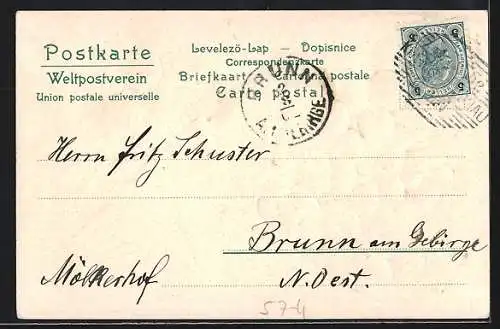 Postkarte
Weltpostverein
Union postale universelle
Levelezö-Lap — Dopisnice
Correspondenzkarte
Briefkaarte — Cartolina postale
Carte postale
BRUNN
A. GEBIRGE
5 5
5 5
Herrn Fritz Schuster
Brunn am Gebirge
Mölkerhof
N. Oest.
57-4